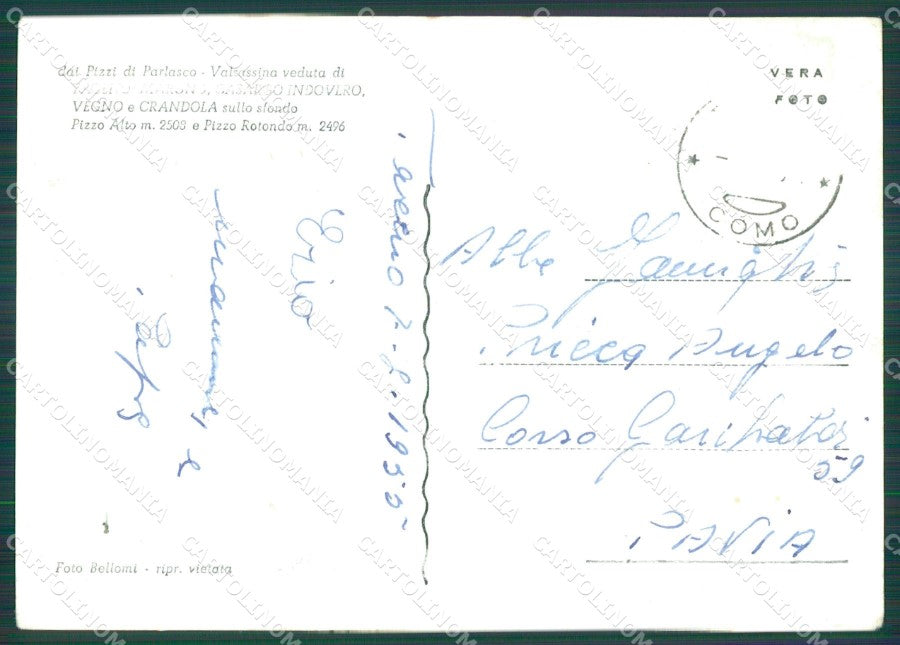 dai Pizzi di Parlasco - Valsassina veduta di
INDOVERO,
VEGNO e CRANDOLA sullo sfondo
Pizzo Alto m. 2508 e Pizzo Rotondo m. 2496
VERA
FOTO
COMO
Ezio
mamma, e
Alla Famiglia
Pricca Angelo
Corso Garibaldi
59
PAVIA
Foto Bellomi - ripr. vietata
CARTOLINOMANIA